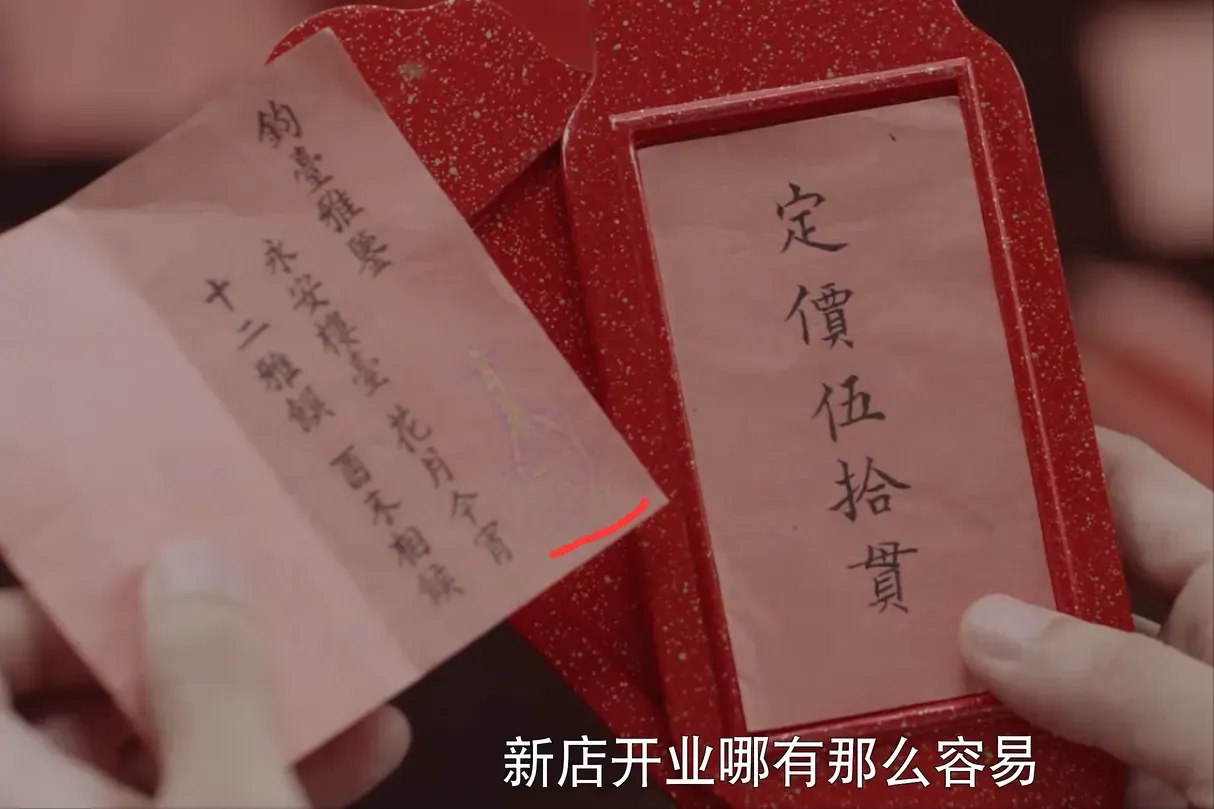 鈞臺雅鑒
永安樓臺 花月今宵
十二雅饌 酉末相候
定價伍拾貫
新店开业哪有那么容易